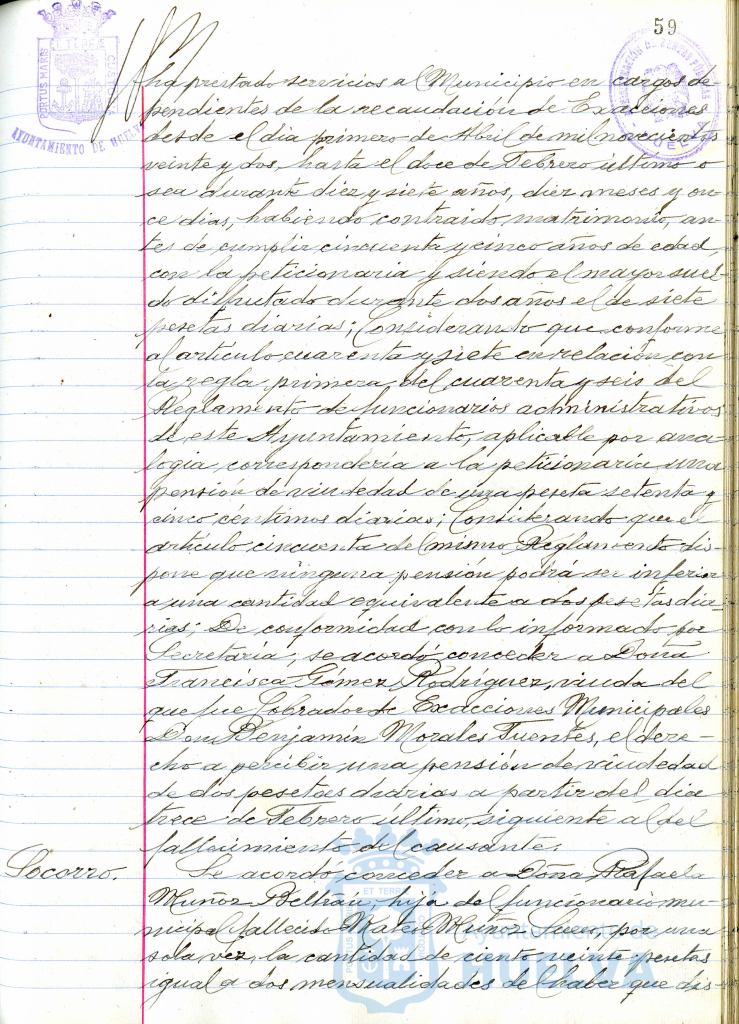 59
PORTUS MARIS ET TERRE CUSTODIA
AYUNTAMIENTO DE HUELVA
ha prestado servicios al Municipio en cargos de-
pendientes de la recaudación de Exacciones
desde el día primero de Abril de mil novecientos
veinte y dos, hasta el doce de Febrero último o
sea durante diez y siete años, diez meses y on-
ce dias, habiendo contraido matrimonio, an-
tes de cumplir cincuenta y cinco años de edad,
con la peticionaria y siendo el mayor suel-
do disfrutado durante dos años el de siete
pesetas diarias; Considerando que conforme
al artículo cuarenta y siete en relación con
la regla primera del cuarenta y seis del
Reglamento de funcionarios administrativos
de este Ayuntamiento, aplicable por ana-
logia, correspondería a la peticionaria una
pensión de viudedad de una peseta setenta y
cinco céntimos diarias; Considerando que el
artículo cincuenta del mismo Reglamento dis-
pone que ninguna pensión podrá ser inferior
a una cantidad equivalente a dos pesetas dia-
rias; De conformidad con lo informado por
Secretaría; se acordó conceder a Doña
Francisca Gómez Rodríguez, viuda del
que fue Cobrador de Exacciones Municipales
Don Benjamín Morales Fuentes, el dere-
cho a percibir una pensión de viudedad
de dos pesetas diarias a partir del dia
trece de Febrero último, siguiente al del
fallecimiento del causante.
Socorro.
Se acordó conceder a Doña Rafaela
Muñoz Beltrán, hija del funcionario mu-
nicipal fallecido Mateo Muñoz, por una
sola vez, la cantidad de ciento veinte pesetas
igual a dos mensualidades del haber que dis-
Ayuntamiento de
HUELVA